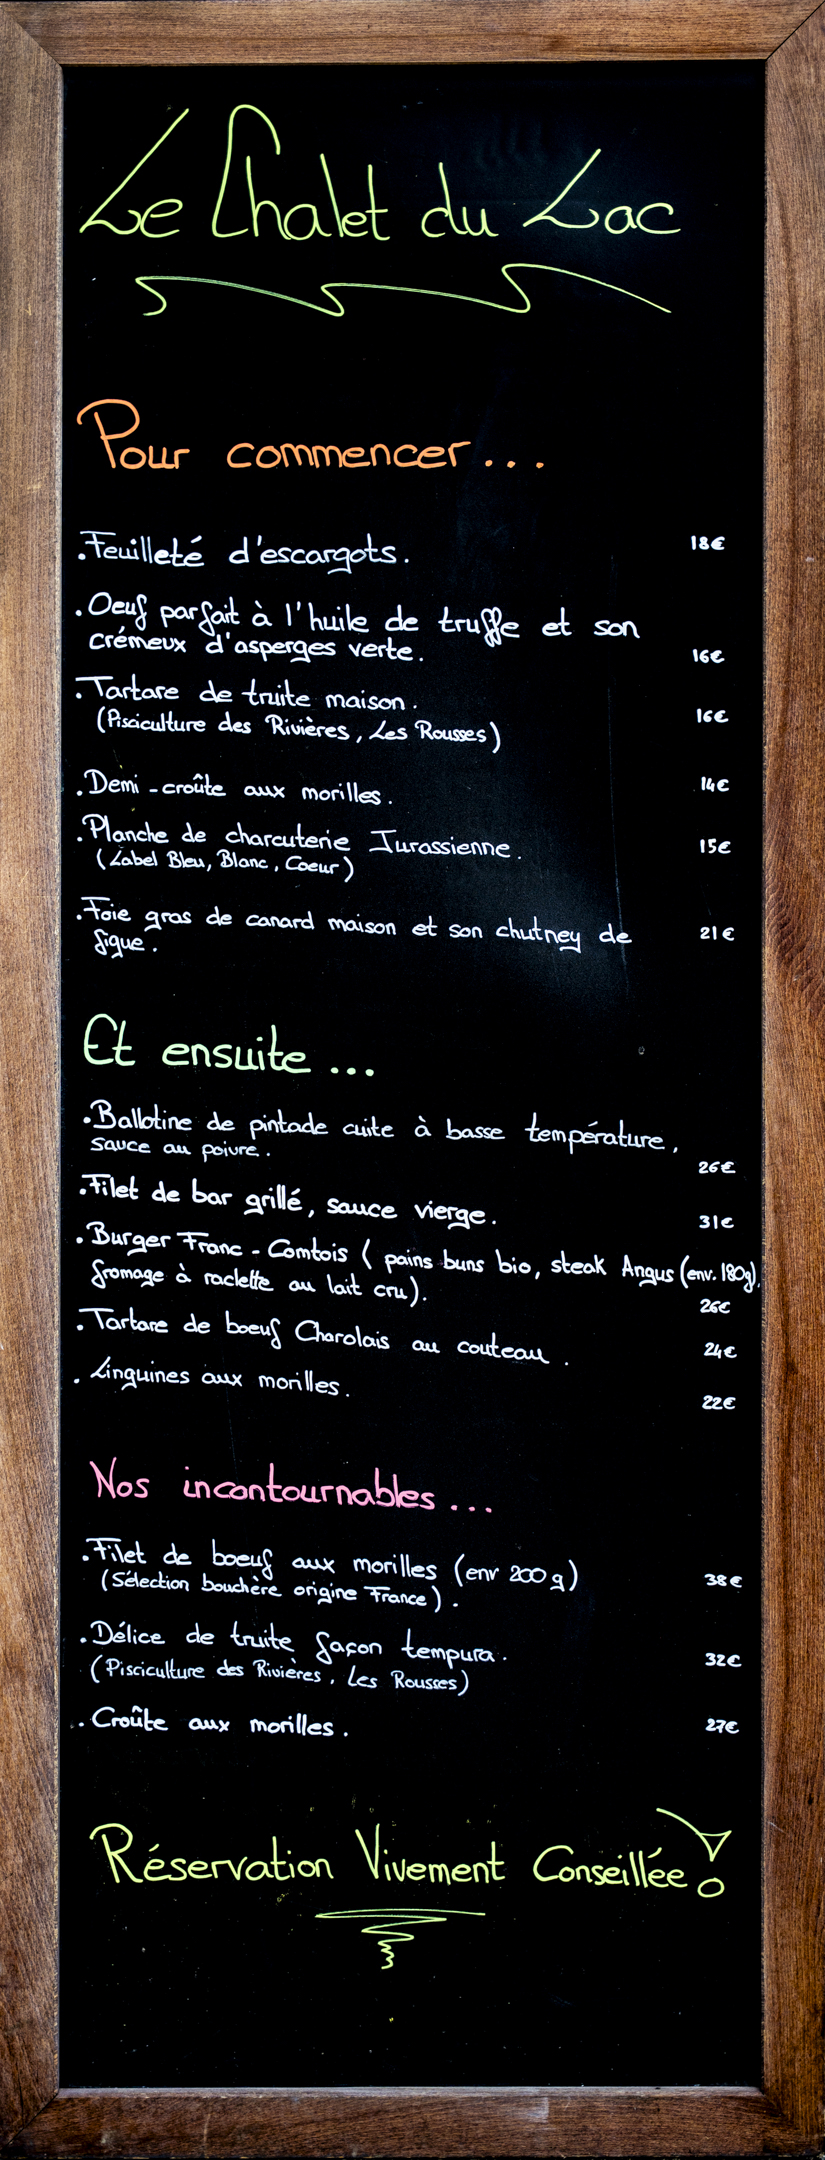 Le Chalet du Lac
Pour commencer...
.Feuilleté d'escargots. 18€
.Oeuf parfait à l'huile de truffe et son
crémeux d'asperges verte. 16€
.Tartare de truite maison. 16€
(Pisciculture des Rivières, Les Rousses)
.Demi-croûte aux morilles. 14€
.Planche de charcuterie Jurassienne. 15€
(Label Bleu, Blanc, Coeur)
.Foie gras de canard maison et son chutney de 21€
figue.
Et ensuite...
.Ballotine de pintade cuite à basse température,
sauce au poivre. 26€
.Filet de bar grillé, sauce vierge. 31€
.Burger Franc-Comtois (pains buns bio, steak Angus (env. 180g),
fromage à raclette au lait cru). 26€
.Tartare de boeuf Charolais au couteau. 24€
.Linguines aux morilles. 22€
Nos incontournables...
.Filet de boeuf aux morilles (env 200g) 38€
(Sélection bouchère origine France).
.Délice de truite façon tempura. 32€
(Pisciculture des Rivières, Les Rousses)
.Croûte aux morilles. 27€
Réservation Vivement Conseillée!